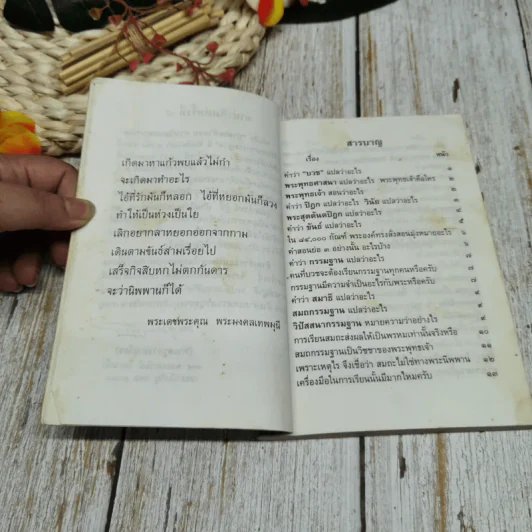 เกิดมาหาแก้วพบแล้วไม่กำ
จะเกิดมาทำอะไร
ไอ้ที่รักมันก็หลอก ไอ้ที่หยอกมันก็ลวง
ทำให้เป็นห่วงเป็นใย
เลิกอยากลาหยอกออกจากกาม
เดินตามขันธ์สามเรื่อยไป
เสร็จกิจสิบหกไม่ตกกันดาร
จะว่านิพพานก็ได้
พระเดชพระคุณ พระมงคลเทพมุนี
สารบาญ
เรื่อง หน้า
คำว่า "บวช" แปลว่าอะไร
พระพุทธศาสนา แปลว่าอะไร พระพุทธเจ้าคือใคร
พระพุทธเจ้า สอนว่าอะไร
คำว่า ปิฎก แปลว่าอะไร วินัย แปลว่าอะไร
พระสุตตันตปิฎก แปลว่าอะไร
คำว่า ขันธ์ แปลว่าอะไร
ใน ๘๔,๐๐๐ กัณฑ์ พระองค์ทรงสั่งสอนมุ่งหมายอะไร
คำสอนย่อ ๓ อย่างนั้น อะไรบ้าง
คำว่า กรรมฐาน แปลว่าอะไร
คนที่บวชจะต้องเรียนกรรมฐานทุกคนหรือครับ
กรรมฐานมีความจำเป็นอะไรกับพระหรือครับ
คำว่า สมาธิ แปลว่าอะไร
สมถกรรมฐาน แปลว่าอะไร
วิปัสสนากรรมฐาน หมายความว่าอย่างไร
การเรียนสมถะส่งผลให้เป็นพรหมเท่านั้นจริงหรือ ๑๐
สมถกรรมฐานเป็นวิชชาของพระพุทธเจ้า
เพราะเหตุไร จึงเชื่อว่า สมถะไม่ใช่ทางพระนิพพาน ๑๒
เครื่องมือในการเรียนนั้นมีมากไหมครับ ๑๓